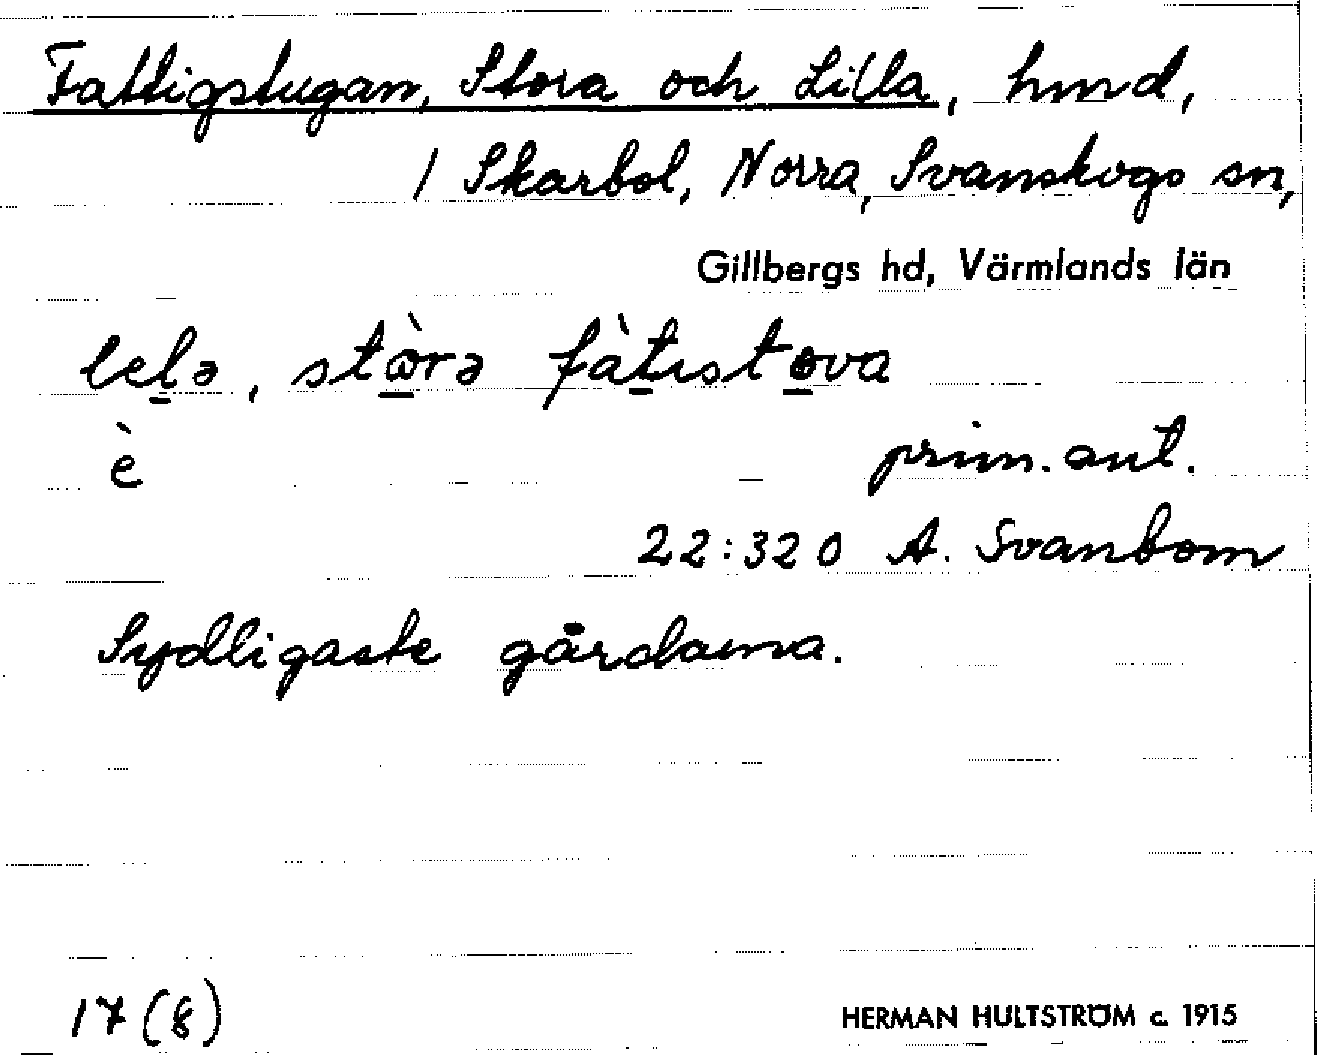 Fattigstugan, Stora och Lilla, hmd,
/ Skarbol, Norra, Svanskogs sn,
Gillbergs hd, Värmlands län
lelə, stòrə fàtıstova
è
prim. ant.
22:320 A. Svanbom
Sydligaste gårdarna.
17(8)
HERMAN HULTSTRÖM c. 1915